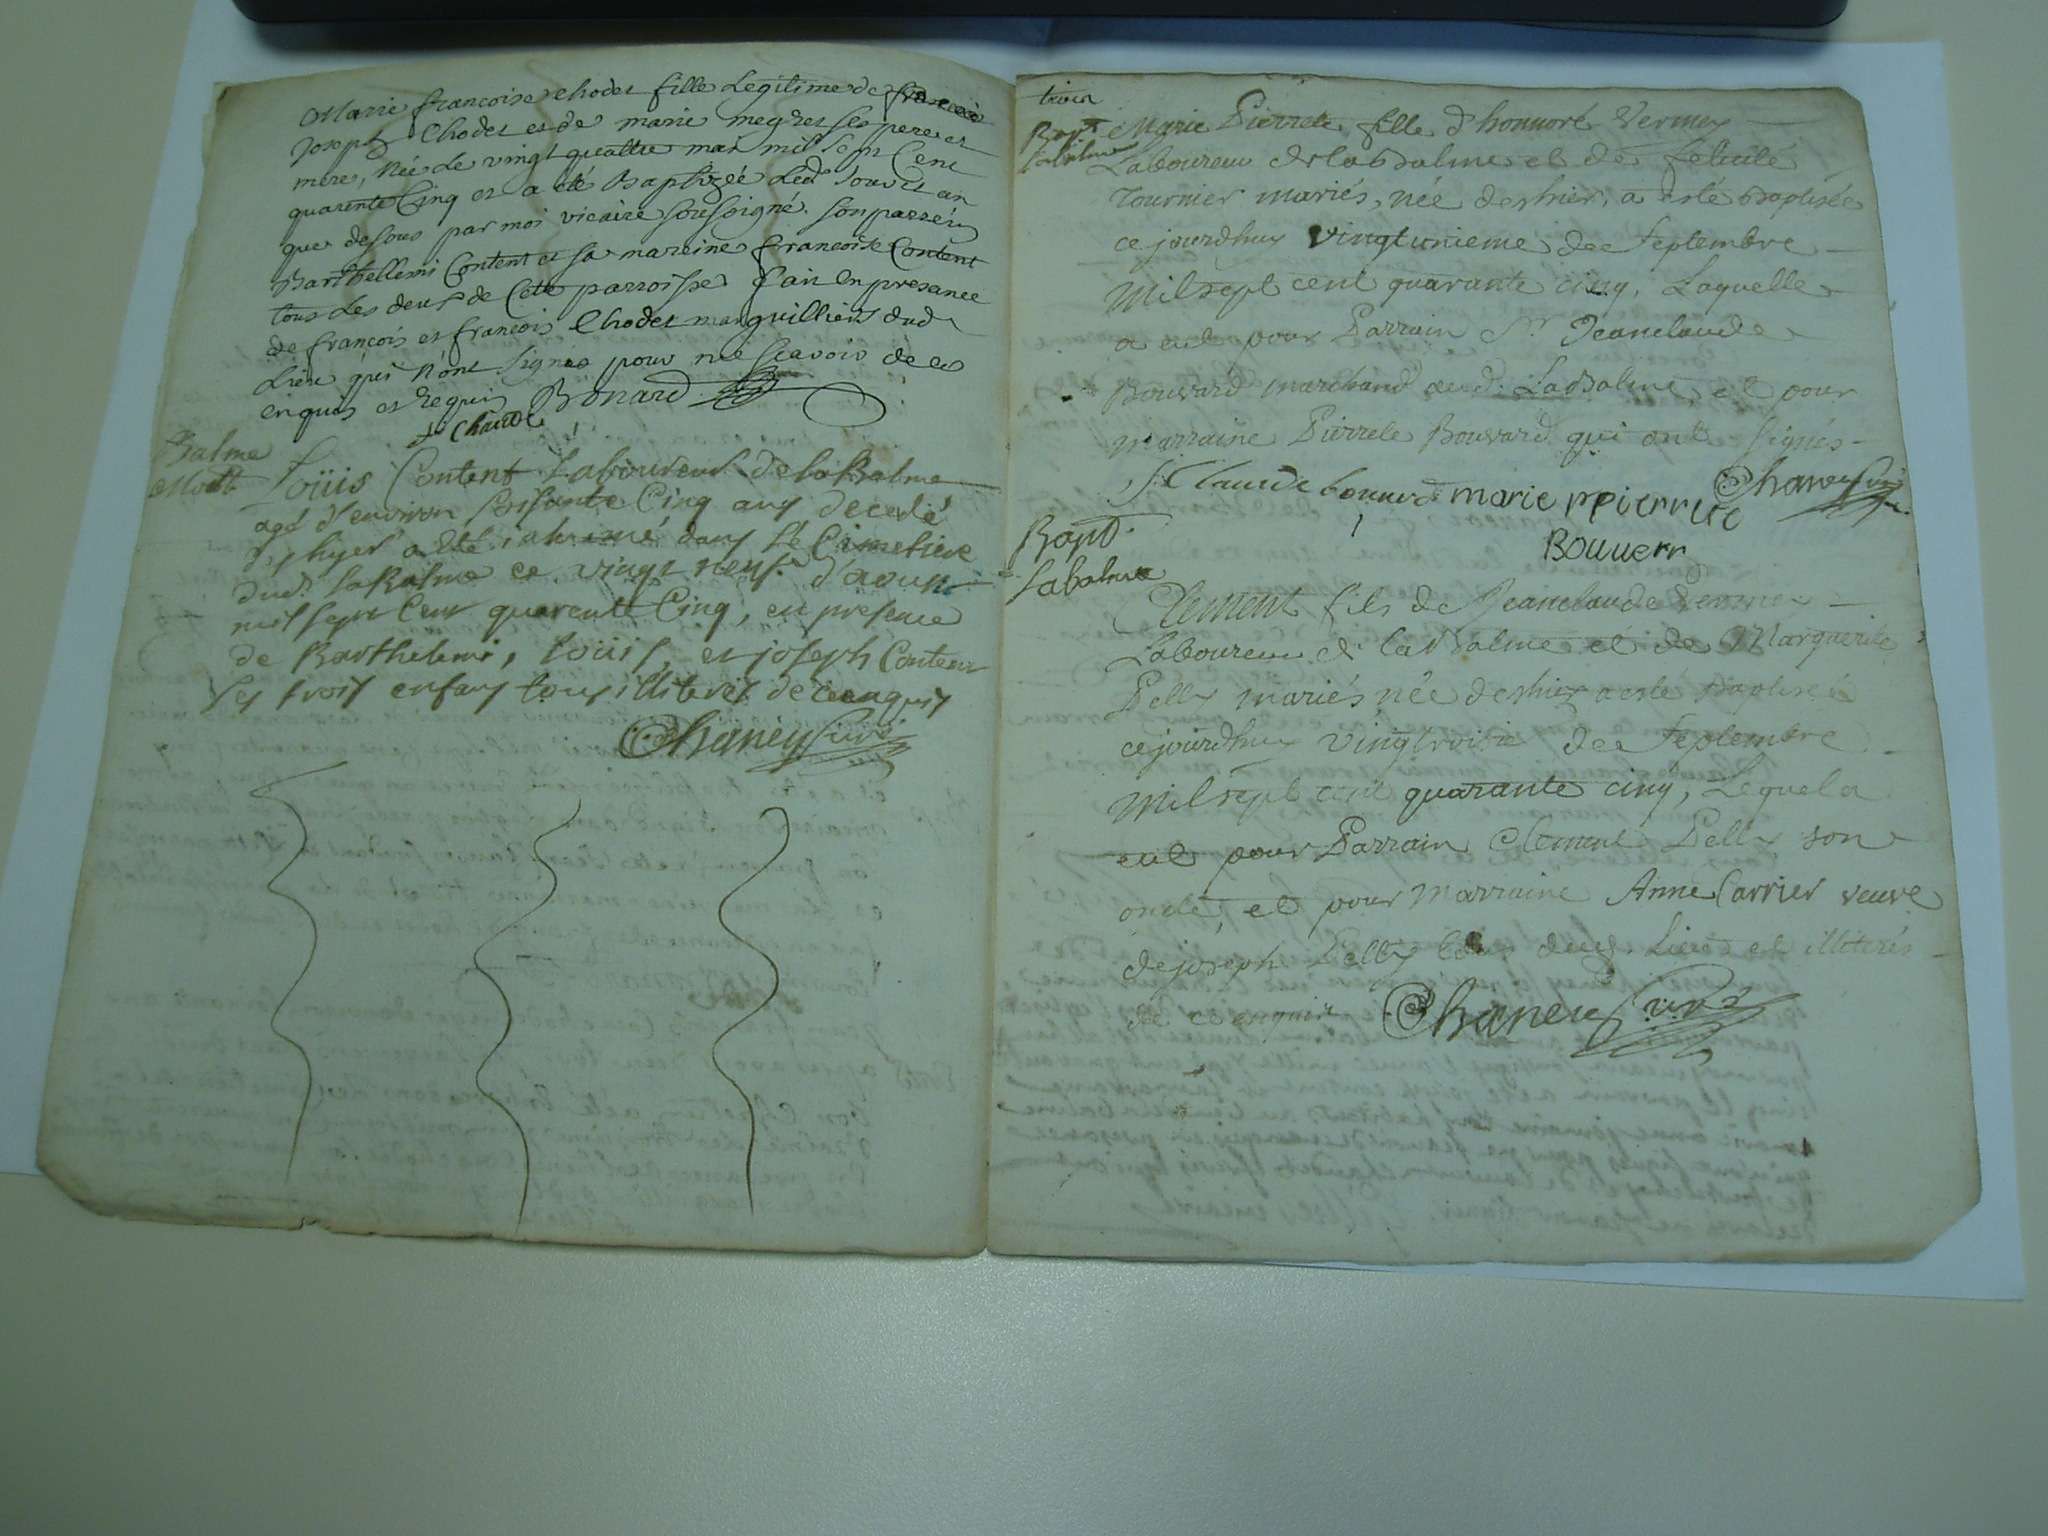 Marie francoise Chodet fille Legitime de francois
Joseph Chodet et de marie megret ses pere et
mere, Née Le vingt quattre mai mil sept Cent
quarente Cinq et a eté Baptizée Led. Jour et an
que dessous par moi vicaire sousoigné. son parrein
Barthellemi Content et sa mareine francoise Content
tous Les deux de Cette parroisse fait en presance
de francois et francois Chodet marguilliers dud
Lieu qui n'ont signés pour ne scavoir de ce
enquis et Requis Bonard
Balme
Mort
Loüis Content Laboureur de la Balme
agé d'environ soisante Cinq ans decedé
d'hyer a été inhumé dans le Cimetiere
dud. la Balme ce vingt neuf d'aoust
mil sept Cent quarente Cinq, en presence
de Barthelemi, Loüis, et joseph Content
ses trois enfans tous illiterés de ce enquis
Chaney Curé
trois
Bapt.
Labalme
Marie Pierrete fille d'honnoré Vermey
Laboureur de la Balme et de felicité
Tournier mariés, née deshier, a esté Baptisée
ce jourdhuy vingtunieme de Septembre
Mil sept cent quarante cinq, Laquelle
a eut pour Parrain Sr. Jeanclaude
Bouvard marchand aud. La Balme, et pour
marraine Pierrete Bouvard qui ont signés
J. Claude bouvard marie ppierrite Chaney Curé
Bouuerr
Bapt.
Labalme
Clement fils de Jeanclaude Vermey
Laboureur de la Balme et de Marguerite
Pelly mariés née deshier a esté Baptisé
ce jourdhuy vingtroisie de Septembre
Mil sept cent quarante cinq, Lequel a
eut pour Parrain Clement Pelly son
oncle, et pour marraine Anne Carrier veuve
de joseph Pelly tous dud. Lieu et illiterés
de ce enquis Chaney Curé